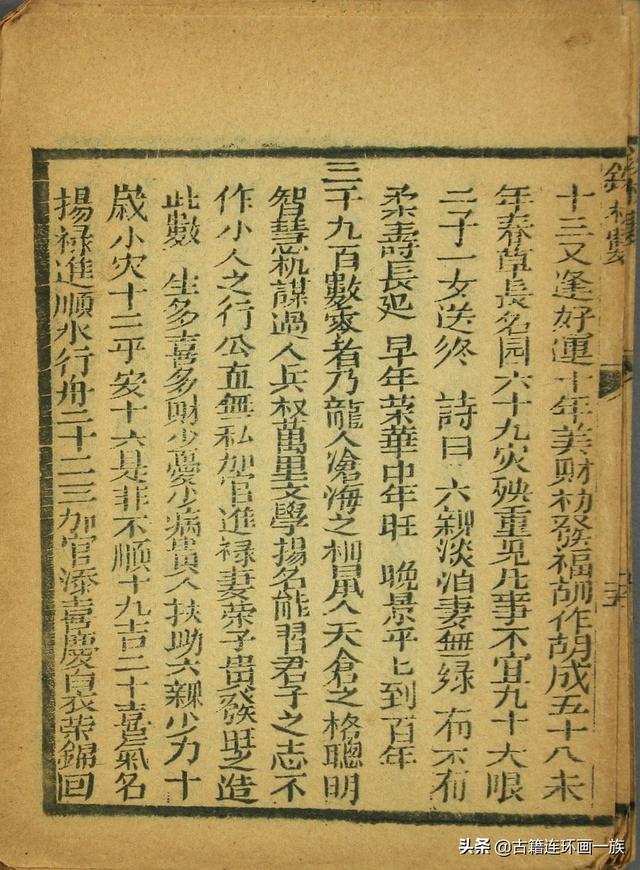 十三又逢好運十年美財初發福胡作胡成五十八未
年春草長名园六十九灾殃重見凡事不宜九十大限
二子一女送終 詩曰 六親淡泊妻無緣 不有
柔壽長延 早年荣華中年旺 晚景平上到百年
三千九百數家者乃龍入滄海之相鼠入天倉之格聰明
智慧机謀過人兵权萬里文學揚名能習君子之志不
作小人之行公直無私加官進禄妻荣子貴發旺之造
此數 生多喜多財少憂少病貴人扶助六親少力十
歲小灾十二平安十六是非不順十九吉二十喜氣名
揚禄進順水行舟二十二三加官添喜慶自衣荣錦回
头条 @古籍连环画一族